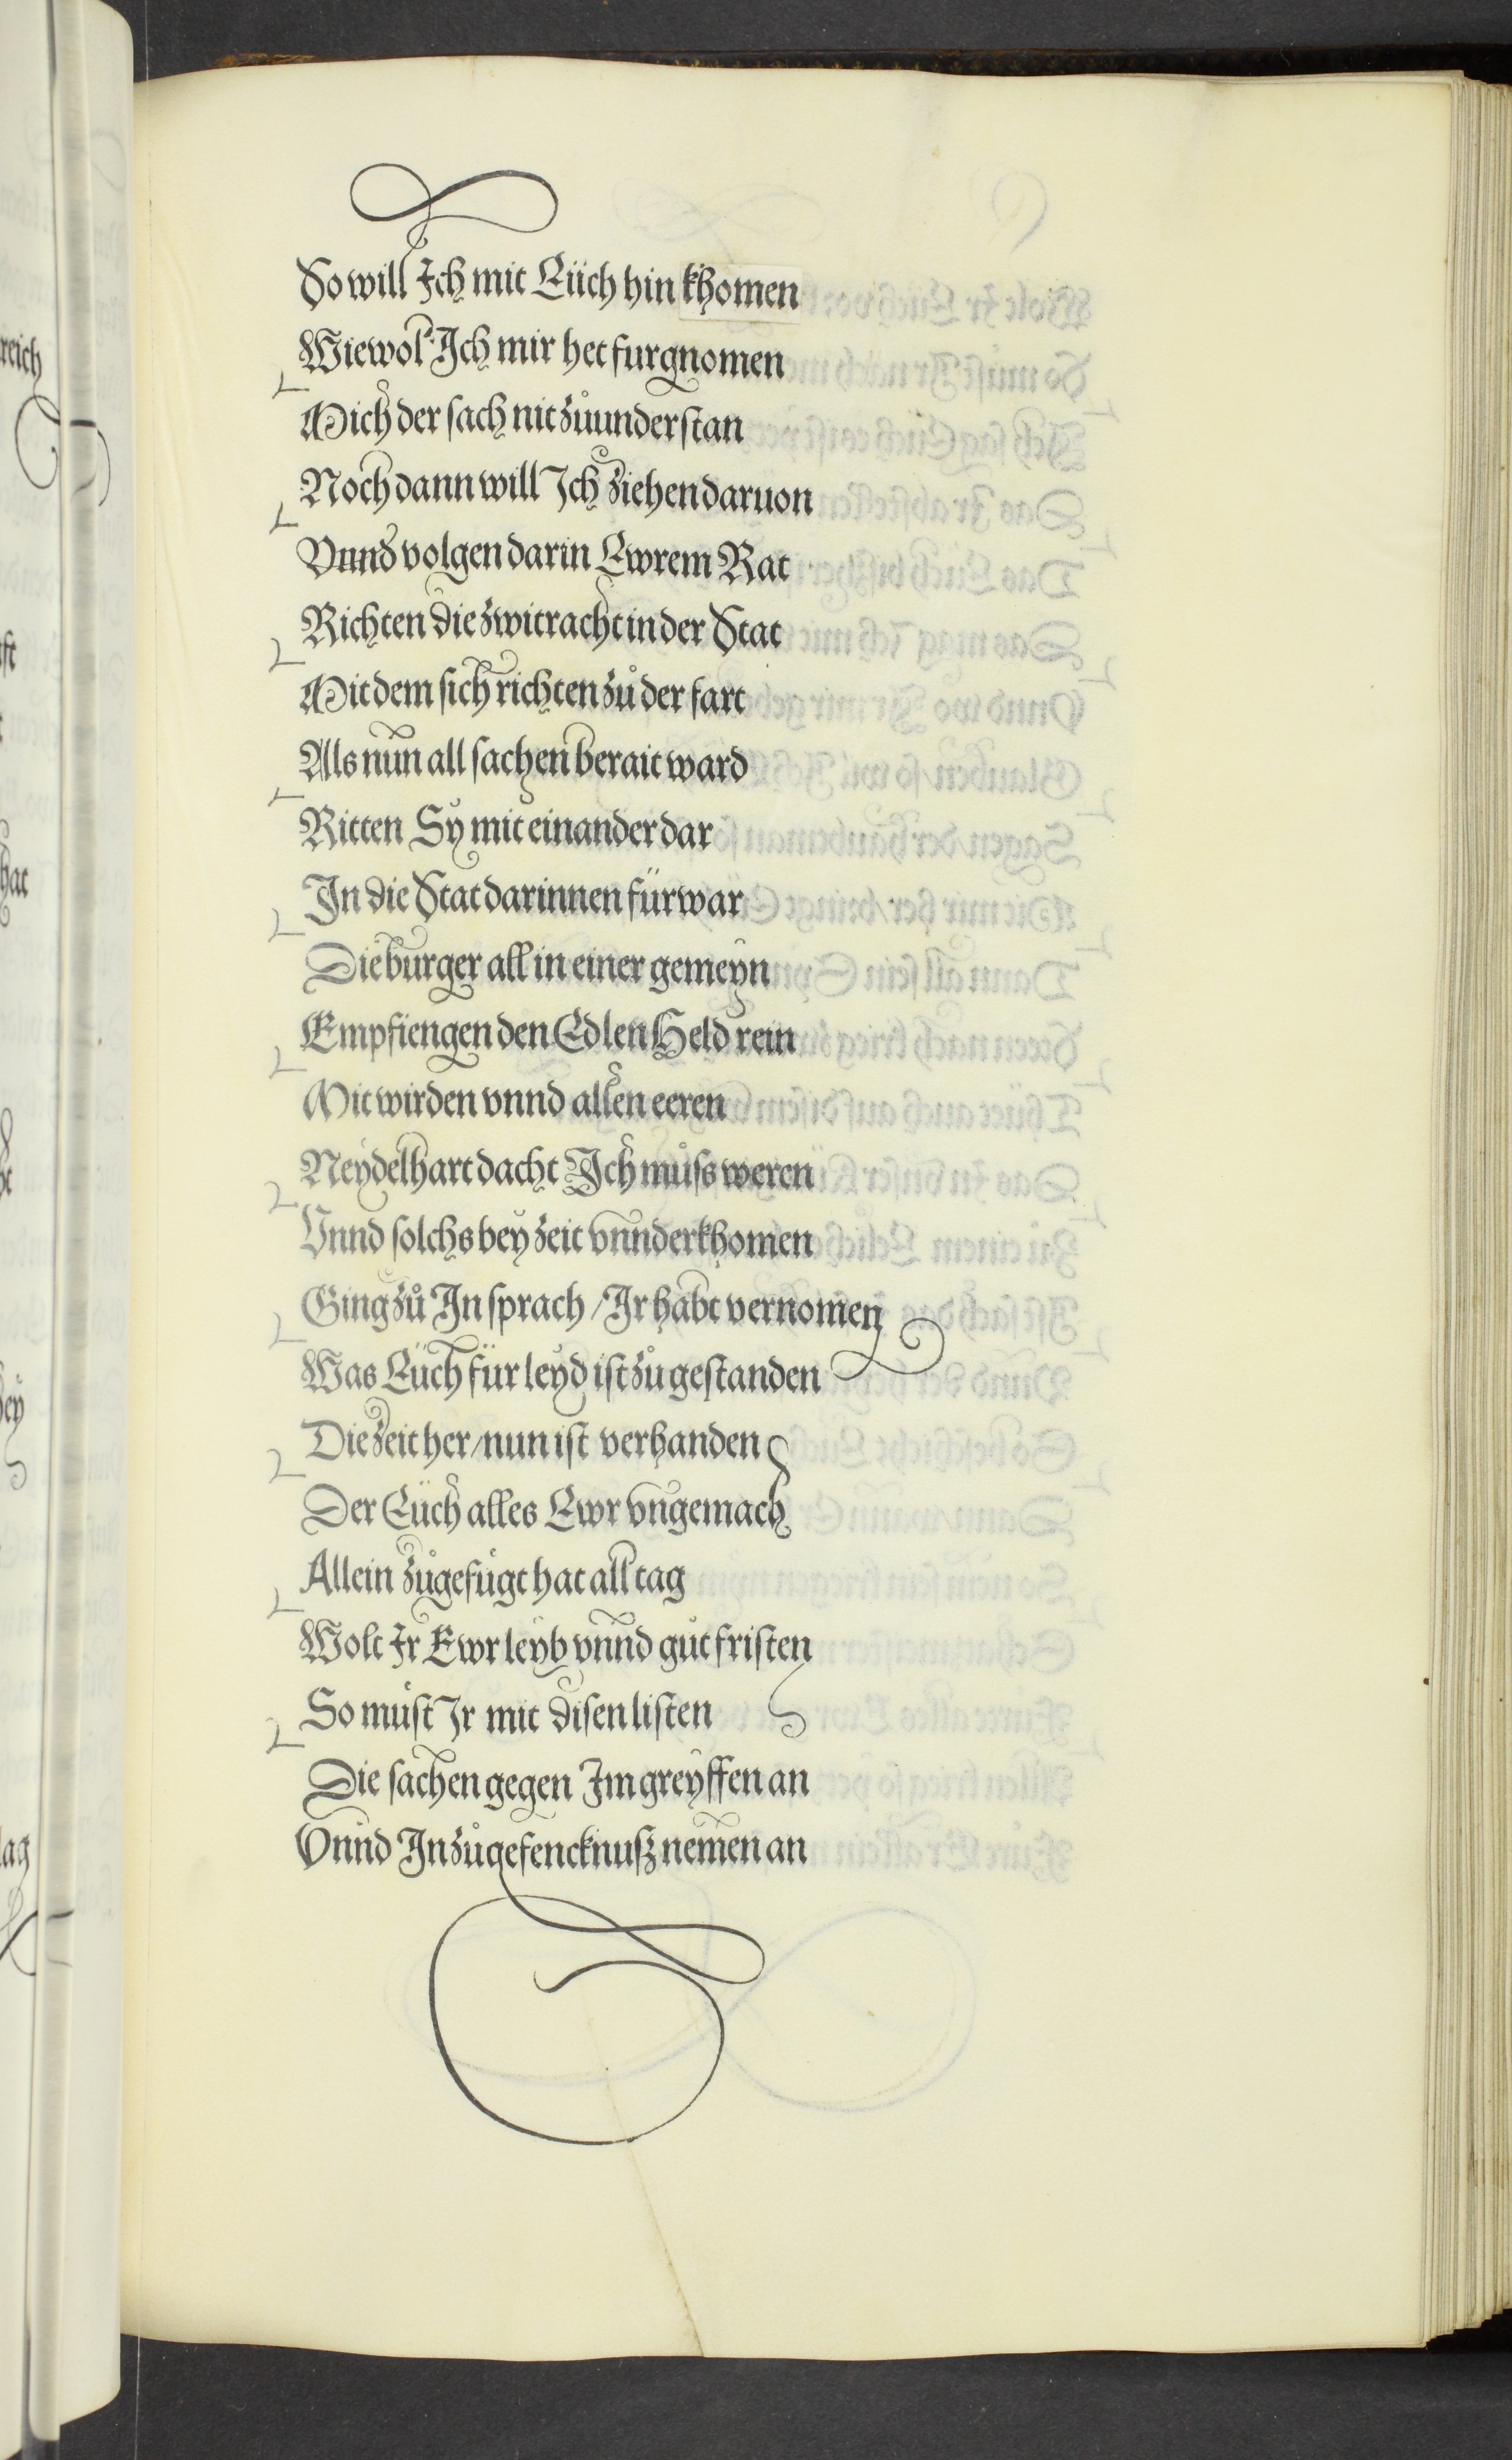 So will Ich mit Eüch hin khomen
Wiewol Ich mir het furgnomen
Mich der sach nit zůunderstan
Noch dann will Ich ziehen daruon
Vnnd volgen darin Ewrem Rat
Richten die zwitracht in der Stat
Mit dem sich richten zů der fart
Als nun all sachen berait ward
Ritten Sy mit einander dar
In die Stat darinnen fürwar
Die burger all in einer gemeyn
Empfiengen den Edlen Held rein
Mit wirden vnnd allen eeren
Neydelhart dacht Ich můss weren
Vnnd solchs bey zeit vnnderkhomen
Ging zů In sprach / Ir habt vernomen
Was Eüch für leyd ist zůgestanden
Die zeit her / nun ist verhanden
Der Eüch alles Ewr vngemach
Allein zůgefügt hat all tag
Wolt Ir Ewr leyb vnnd gůt fristen
So müst Ir mit disen listen
Die sachen gegen Im greyffen an
Vnnd In zů gefencknuß nemen an
reich
hat
ag